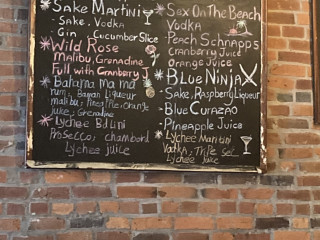 * Sake Martini
- Sake, Vodka
- Gin Cucumber Slice
* Wild Rose
Malibu, Grenadine
Full with Cranberry J
* Bahama Mama
rum, Banan Liqueur
malibu, Pineapple, orange
juice, Grenadine
* Lychee Bellini
Prosecco, Chambord
Lychee juice
* Sex On The Beach
Vodka
- Peach Schnapps
Cranberry Juice
Orange Juice
* Blue Ninja X
- Sake, Raspberry Liqueur
- Blue Curazao
- Pineapple Juice
* Lychee Martini
Vodka, Triple sec
Lychee juice